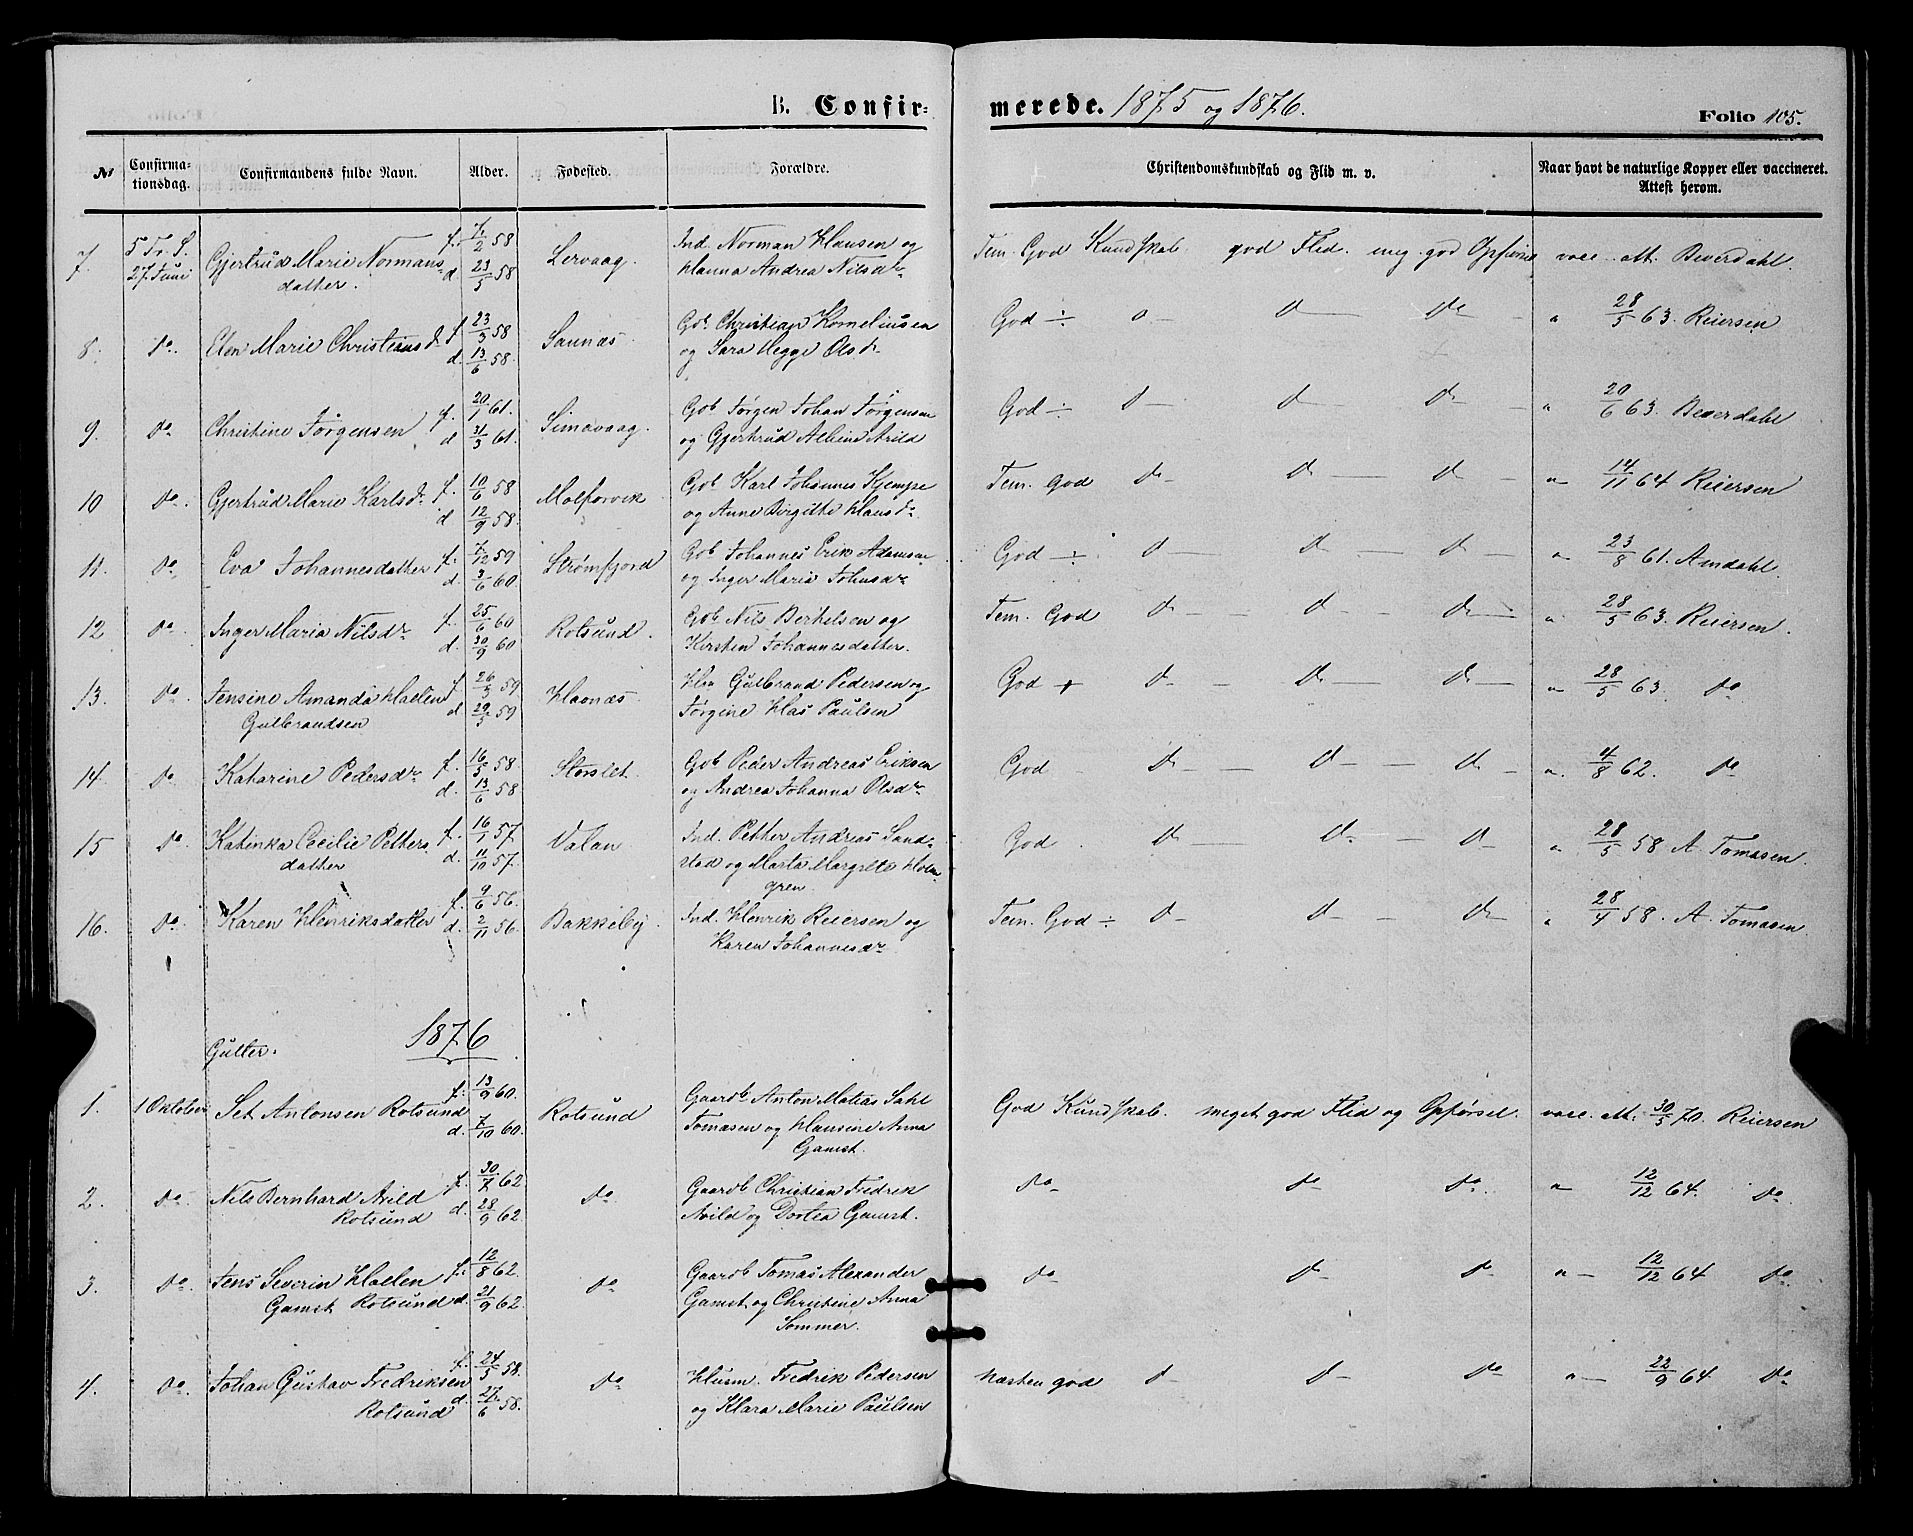 B. Confirmerede. 1875 og 1876. Folio 105.
№ Confirmationsdag. Confirmandens fulde Navn. Alder. Fødested. Forældre. Christendomskundskab og Flid m. v. Naar havt de naturlige Kopper eller vaccineret. Attest herom.
7. 5 Tr. S. 27 Juni Gjertrud Marie Normansdatter. f. 7/2 58 d. 23/5 58 Lervaag. Ind. Norman Hansen og Hanna Andrea Nilsdr Tem. God Kundskab. god Flid. meg. god Opførsel vacc. att. Beverdahl.
8. do. Elen Marie Christensd. f. 23/3 58 d. 13/6 58. Saunæs Gb. Christian Korneliusen og Sara Hegge Olsdr God ÷ d d do " 28/5 63. Reiersen
9. do Christine Jørgensen f. 20/1 61. d 31/3 61. Simavaag. Gb Jørgen Johan Jørgensen og Gjertrud Albine Arild God ÷ d d do " 20/6 63. Beverdahl
10 do. Gjertrud Marie Karlsdr f. 10/6 58 d 12/9 58. Molforvik Gb. Karl Johannes Kjempe og Anne Birgitte Hansdr Tem. god do d do " 14/11 64 Reiersen
11. do. Eva Johannesdatter f. 7/12 59 d. 3/6 60 Strømfjord Gb Johannes Erik Adamsen og Inger Maria Johnsdr God ÷ d d d " 23/8 61. Amdahl.
12 do Inger Maria Nilsdr f. 25/6 60 d. 30/9 60 Rotsund. Gb. Nils Berhelsen og Kirsten Johannesdatter. Tem. God d d do " 28/5 63. Reiersen.
13. do Jensine Amanda Haelen Gulbrandsen f. 26/3 59. d 29/5 59 Havnæs. Gulbrand Pedersen og Jørgine Has Paulsen God + d d d " 28/5 63. do.
14. do Katarine Pedersdr f. 16/5 58. d. 13/6 58 Storslet. Gb Peder Andreas Eriksen og Andrea Johanna Olsdr. God d d d " 4/8 62. do
15 do. Katinka Cecilie Pettersdatter f. 16/1 57. d. 11/10 57. Valan Ind. Petter Andreas Sandstad og Marta Margrete Holmgren. God d d d " 28/5 58 A. Tomasen.
16. do. Karen Henriksdatter f. 9/6 56. d. 2/11 56. Bakkeby Ind. Henrik Reiersen og Karen Johannesdr Tem. God ÷ d d d " 28/4 58. A. Tomasen.
1876
Gutter.
1. 1 Oktober Set Antonsen Rotsund f. 13/9 60. d. 7/10 60. Rotsund Gaardb Anton Matias Sahl Tomasen og Hansine Anna Gamst. God Kundskab. meget god Flid og Opførsel. vacc. att. 30/5 70. Reiersen
2. do. Nils Bernhard Arild Rotsund f. 30/7 62 d. 28/9 62. do. Gaardb Christian Fredrik Arild og Dortea Gamst. do do do. " 12/12 64. do.
3. do. Jens Severin Haelen Gamst Rotsund f. 12/8 62. d. 21/9 62. do Gaardb Tomas Alexander Gamst og Christine Anna Sommer. do d do " 12/12 64 do.
4. do. Johan Gustav Fredriksen Rotsund f. 24/5 58. d. 27/6 58. do Husm. Fredrik Pedersen og Klara Marie Paulsen Næsten god d d do " 22/9 64 do